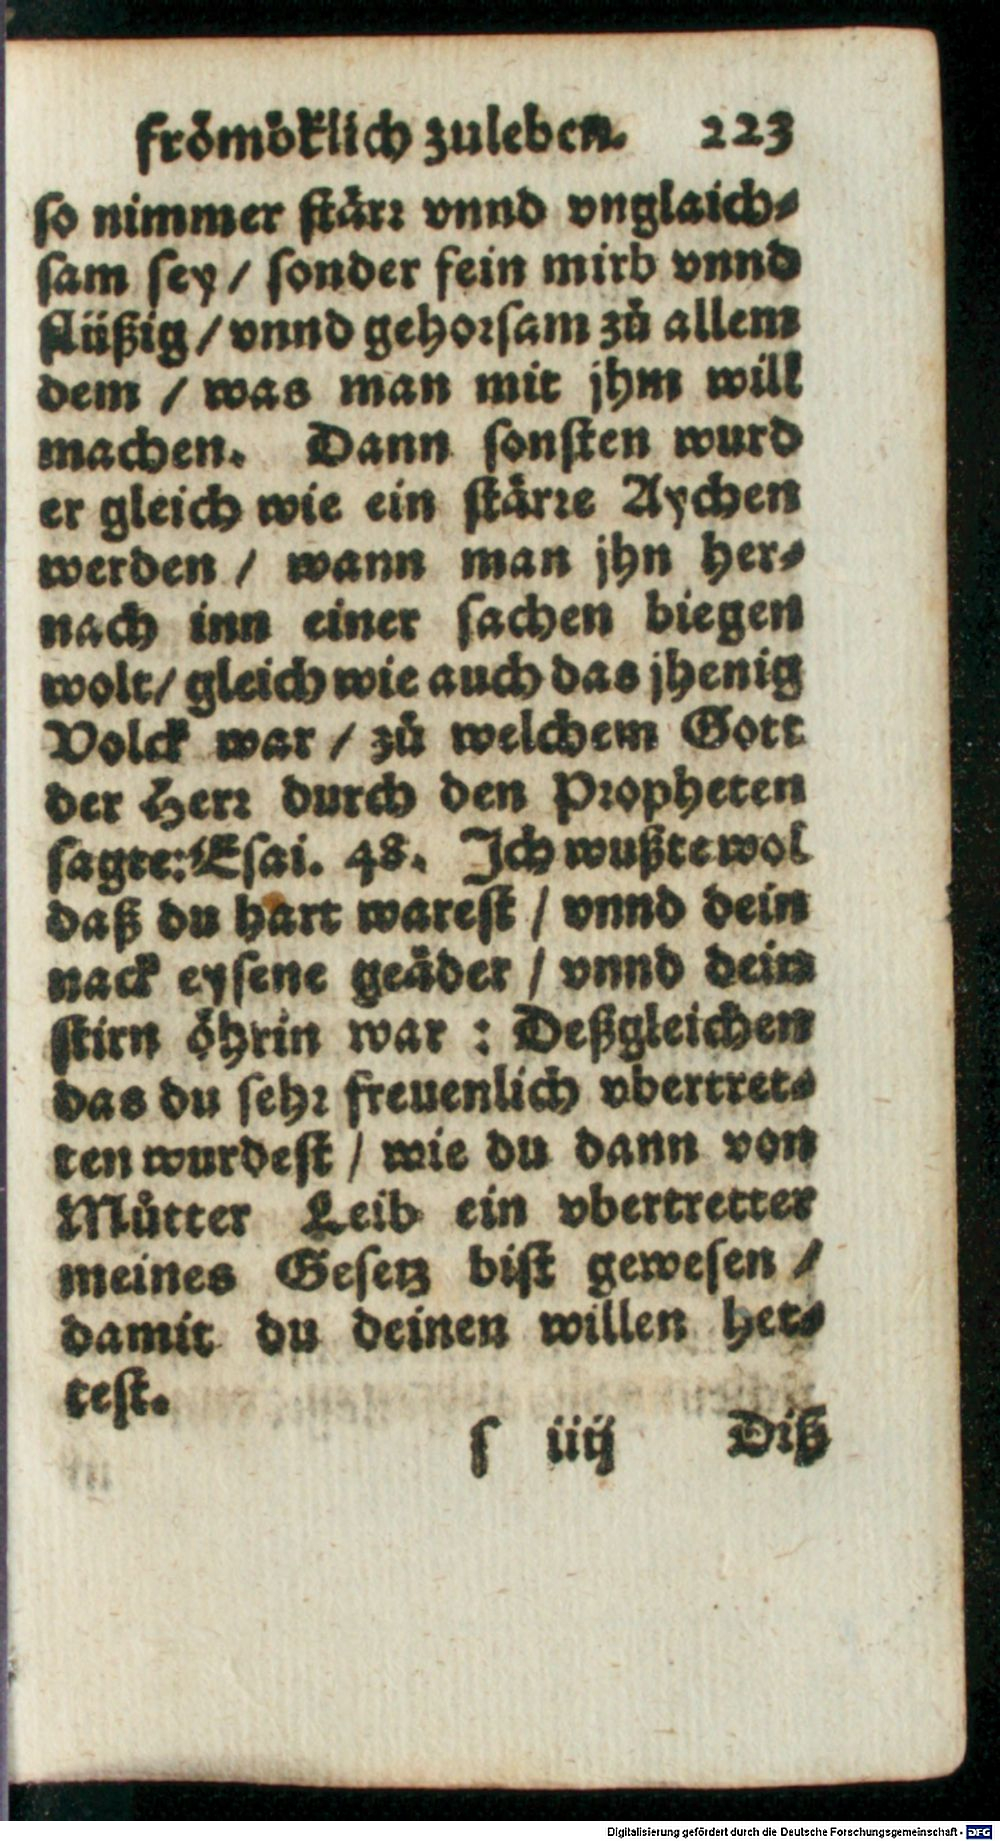 frömöklich zuleben. 223
so nimmer stärr vnnd vnglaich⸗
sam sey / sonder fein mirb vnnd
flüßig / vnnd gehorsam zů allem
dem / was man mit jhm will
machen. Dann sonsten wurd
er gleich wie ein stärre Aychen
werden / wann man jhn her⸗
nach inn einer sachen biegen
wolt / gleich wie auch das jhenig
Volck war / zů welchem Gott
der Herr durch den Propheten
sagte: Esai. 48. Ich wußte wol
daß du hart warest / vnnd dein
nack eysene geäder / vnnd dein
stirn öhrin war : Deßgleichen
das du sehr freuenlich vbertret⸗
ten wurdest / wie du dann von
Můtter Leib ein vbertretter
meines Gesetz bist gewesen /
damit du deinen willen het⸗
test.
s iiij Diß
Digitalisierung gefördert durch die Deutsche Forschungsgemeinschaft - DFG